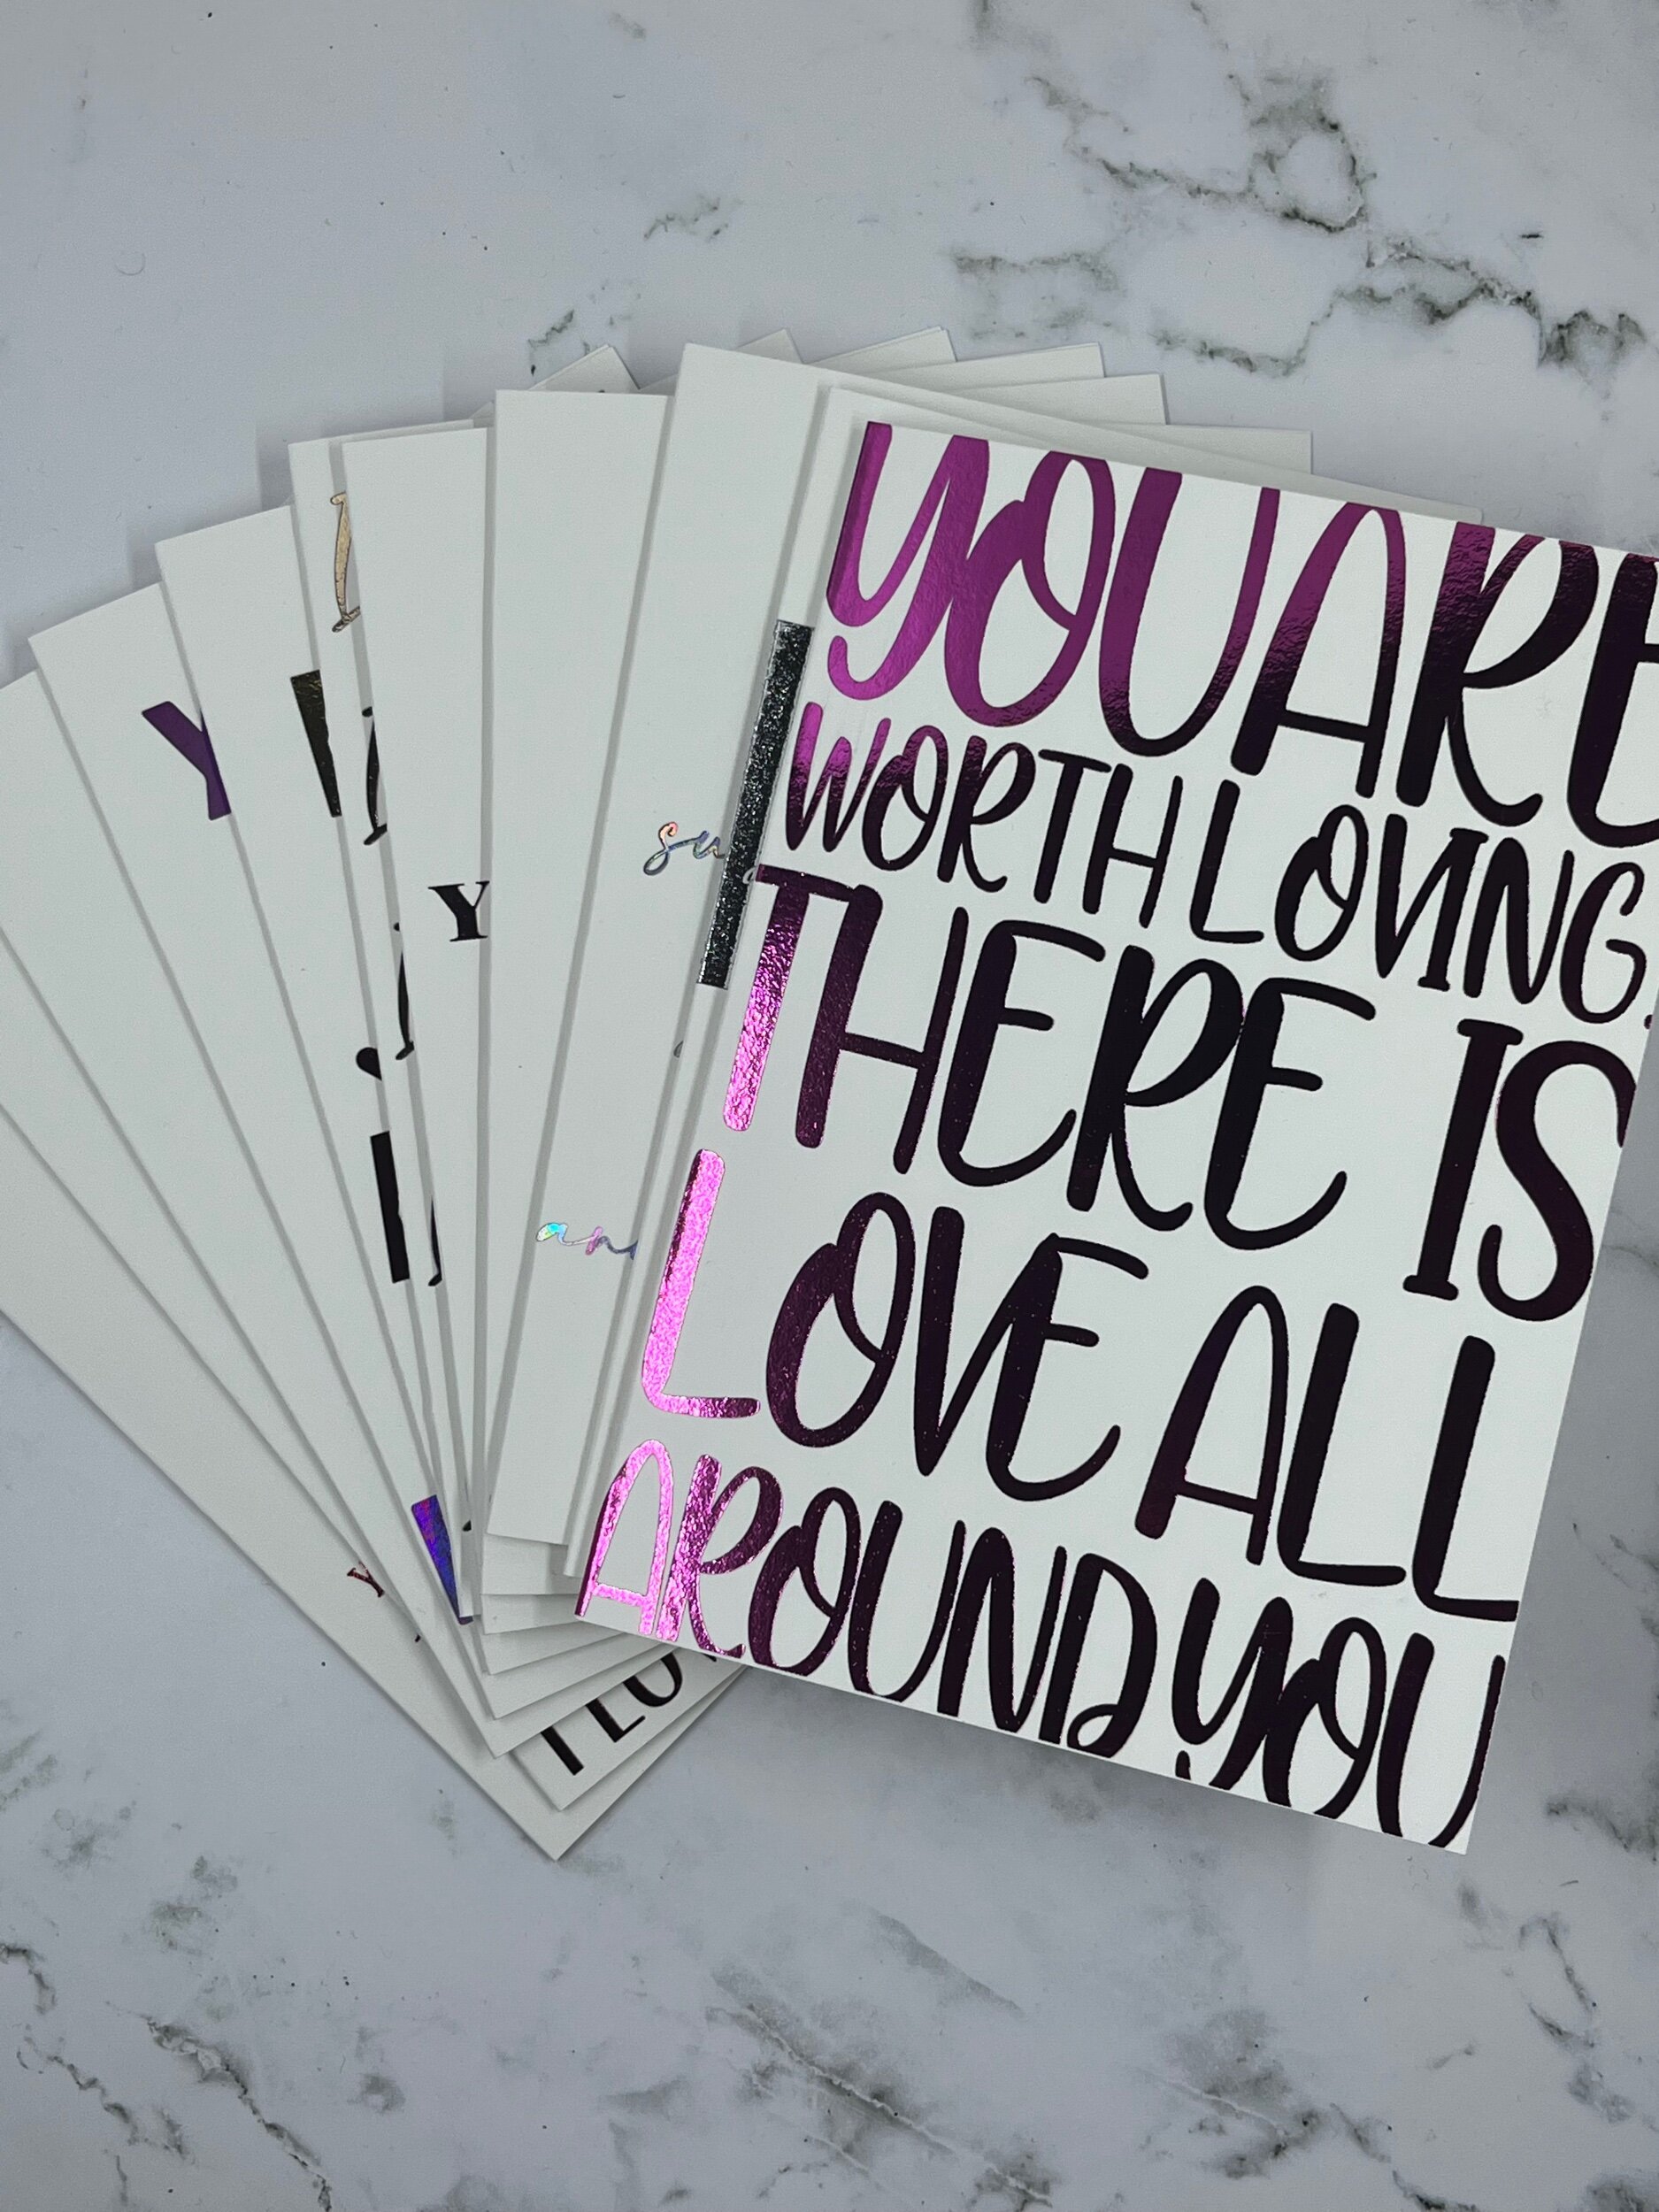 YOU ARE
WORTH LOVING.
THERE IS
LOVE ALL
AROUND YOU